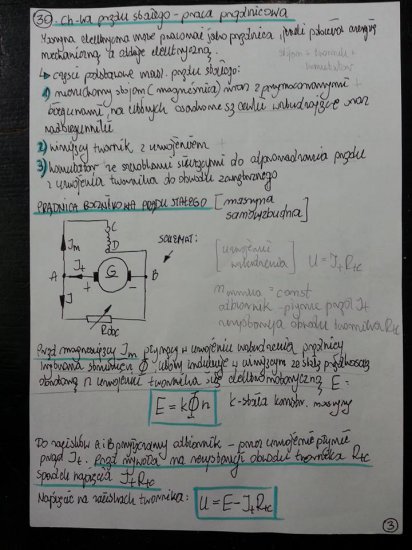 30. Ch-ka prądu stałego - praca prądnicowa
Maszyna elektryczna może pracować jako prądnica, jeżeli pobiera energię
mechaniczną a oddaje elektryczną.
stojan = twornik +
komutator
części podstawowe masz. prądu stałego:
1) nieruchomy stojan (magneśnica) wraz z przymocowanymi
biegunami, na których osadzone są cewki wzbudzające oraz
nadbiegunniki
2) wirujący twornik z uzwojeniem
3) komutator ze szczotkami służącymi do odprowadzania prądu
z uzwojenia twornika do obwodu zewnętrznego
PRĄDNICA BOCZNIKOWA PRĄDU STAŁEGO [maszyna
samowzbudna]
C
D
Im
It
A
+
G
-
B
I
Robc
SCHEMAT:
[uzwojenie
wzbudzenia] U = It Rtc
= const
odbiornik - płynie prąd It
rezystancja obwodu twornika Rtc
Prąd magnesujący Im płynący w uzwojeniu wzbudzenia prądnicy
strumień Φ, który indukuje w wirującym ze stałą prędkością
obrotową n uzwojeniu twornika siłę elektromotoryczną E:
E = kΦn
k - stała konstr. maszyny
Do zacisków A i B przyłączamy odbiornik - przez uzwojenie płynie
prąd It. Prąd wywoła na rezystancji obwodu twornika Rtc
spadek napięcia It Rtc
Napięcie na zaciskach twornika: U = E - It Rtc
3